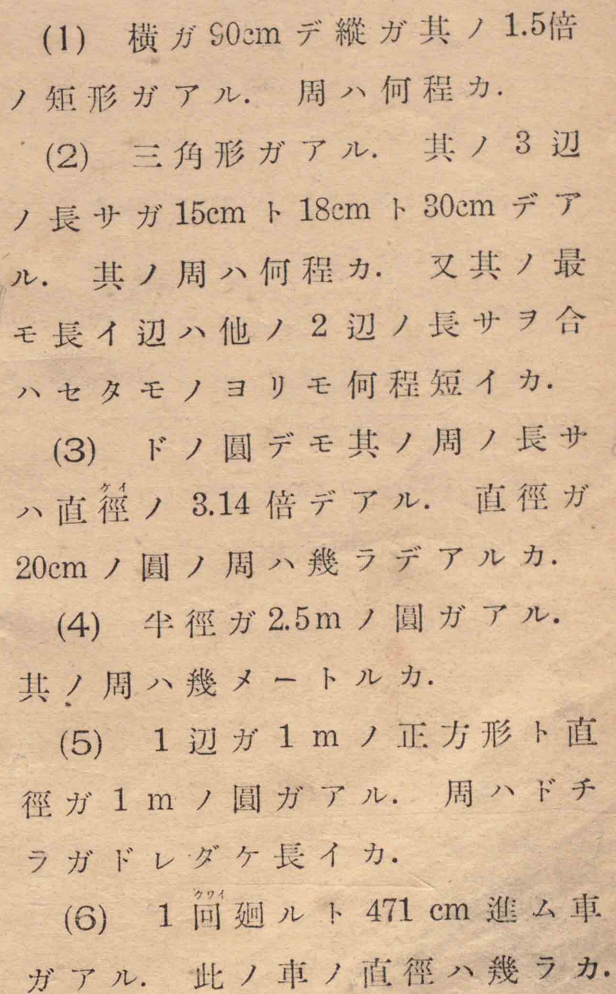 (1) 横ガ90cmデ縱ガ其ノ1.5倍
ノ矩形ガアル. 周ハ何程カ.
(2) 三角形ガアル. 其ノ3辺
ノ長サガ15cmト18cmト30cmデア
ル. 其ノ周ハ何程カ. 又其ノ最
モ長イ辺ハ他ノ2辺ノ長サヲ合
ハセタモノヨリモ何程短イカ.
(3) ドノ圓デモ其ノ周ノ長サ
ハ直徑ノ3.14倍デアル. 直徑ガ
20cmノ圓ノ周ハ幾ラデアルカ.
(4) 半徑ガ2.5mノ圓ガアル.
其ノ周ハ幾メートルカ.
(5) 1辺ガ1mノ正方形ト直
徑ガ1mノ圓ガアル. 周ハドチ
ラガドレダケ長イカ.
(6) 1回廻ルト471cm進ム車
ガアル. 此ノ車ノ直徑ハ幾ラカ.